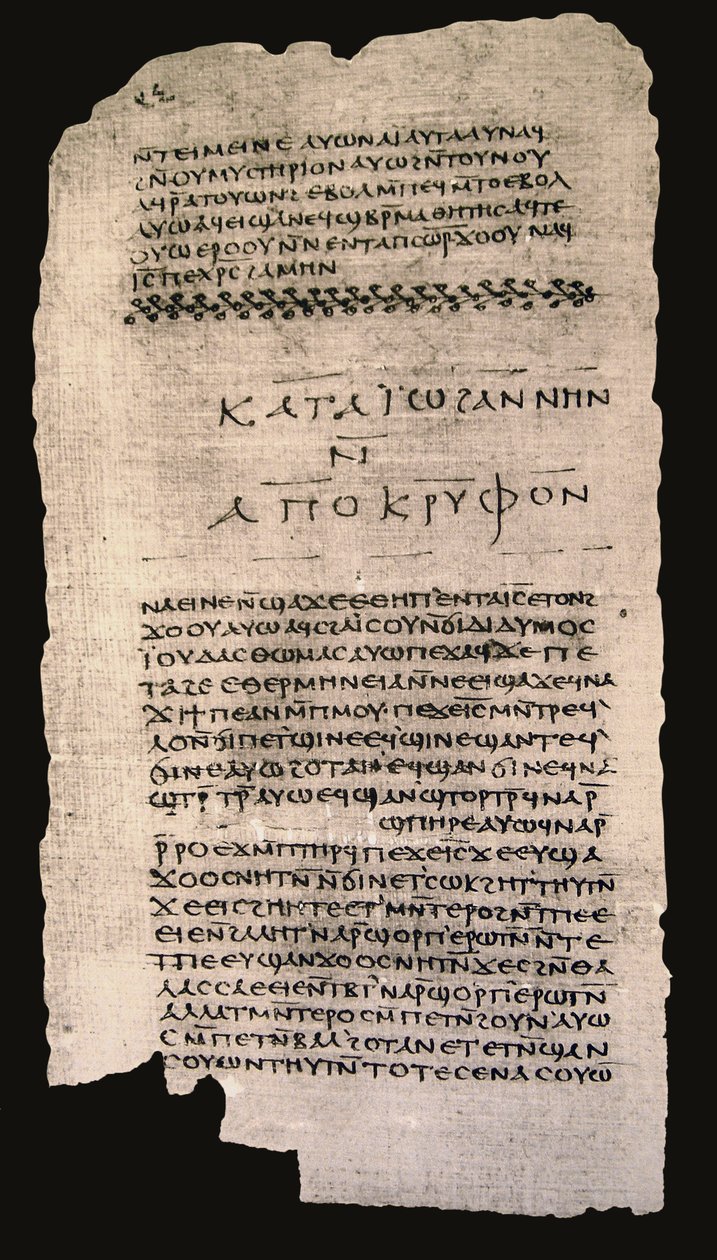 ⲛ̅ⲧⲉⲓⲙⲉⲓⲛⲉ ⲁⲩⲱ ⲛⲁⲓ̈ ⲁⲩⲧⲁⲁⲩ ⲛⲁϥ
ϩⲛ̅ⲟⲩⲙⲩⲥⲧⲏⲣⲓⲟⲛ ⲁⲩⲱ ϩⲛ̅ⲧⲟⲩⲛⲟⲩ
ⲁϥⲣ̅ⲁⲧⲟⲩⲱⲛϩ ⲉⲃⲟⲗ ⲙ̅ⲡⲉϥⲙ̅ⲧⲟ ⲉⲃⲟⲗ
ⲁⲩⲱ ⲁϥⲉⲓ ϣⲁⲛⲉϥϣⲃⲣ̅ⲙⲁⲑⲏⲧⲏⲥ ⲁϥⲧⲉ
ⲟⲩⲱ ⲉⲣⲟⲟⲩ ⲛ̅ⲛⲉⲛⲧⲁⲡⲥⲱ̅ⲣ̅ ϫⲟⲟⲩ ⲛⲁϥ
ⲓ̅ⲥ̅ ⲡⲉⲭⲣ̅ⲥ̅ ϩⲁⲙⲏⲛ
ⲕⲁⲧⲁ ⲓ̈ⲱϩⲁⲛⲛⲏⲛ
ⲛ̅
ⲁⲡⲟⲕⲣⲩⲫⲟⲛ
ⲛⲁⲉⲓ ⲛⲉ ⲛ̅ϣⲁϫⲉ ⲉⲑⲏⲡ ⲉⲛⲧⲁⲓ̅ⲥ̅ ⲉⲧⲟⲛϩ
ϫⲟⲟⲩ ⲁⲩⲱ ⲁϥⲥϩⲁⲓ̈ⲥⲟⲩ ⲛ̅ϭⲓ ⲇⲓⲇⲩⲙⲟⲥ
ⲓ̈ⲟⲩⲇⲁⲥ ⲑⲱⲙⲁⲥ ⲁⲩⲱ ⲡⲉϫⲁϥ ϫⲉ ⲡⲉ
ⲧⲁϩⲉ ⲉⲑⲉⲣⲙⲏⲛⲉⲓⲁ ⲛ̅ⲛⲉⲉⲓϣⲁϫⲉ ϥⲛⲁ
ϫⲓ ϯⲡⲉ ⲁⲛ ⲙ̅ⲡⲙⲟⲩ· ⲡⲉϫⲉ ⲓ̅ⲥ̅ ⲙⲛ̅ⲧⲣⲉϥ
ⲗⲟ ⲛ̅ϭⲓ ⲡⲉⲧϣⲓⲛⲉ ⲉϥϣⲓⲛⲉ ϣⲁⲛⲧⲉϥ
ϭⲓⲛⲉ ⲁⲩⲱ ϩⲟⲧⲁⲛ ⲉϥϣⲁⲛϭⲓⲛⲉ ϥⲛⲁ
ϣⲧⲣ̅ⲧⲣ̅ ⲁⲩⲱ ⲉϥϣⲁⲛϣⲧⲟⲣⲧⲣ̅ ϥⲛⲁⲣ̅
ϣⲡⲏⲣⲉ ⲁⲩⲱ ϥⲛⲁⲣ̅
ⲣ̅ⲣⲟ ⲉϫⲙ̅ⲡⲧⲏⲣϥ ⲡⲉϫⲉ ⲓ̅ⲥ̅ ϫⲉ ⲉⲩϣⲁ
ϫⲟⲟⲥ ⲛⲏⲧⲛ̅ ⲛ̅ϭⲓ ⲛⲉⲧⲥⲱⲕ ϩⲏⲧⲧⲏⲩⲧⲛ̅
ϫⲉ ⲉⲓⲥϩⲏⲏⲧⲉ ⲉⲧⲙⲛ̅ⲧⲉⲣⲟ ϩⲛ̅ⲧⲡⲉ ⲉ
ⲉⲓⲉ ⲛ̅ϩⲁⲗⲏⲧ ⲛⲁⲣ̅ϣⲟⲣⲡ ⲉⲣⲱⲧⲛ̅ ⲛ̅ⲧⲉ
ⲧⲡⲉ ⲉⲩϣⲁⲛϫⲟⲟⲥ ⲛⲏⲧⲛ̅ ϫⲉ ⲥϩⲛ̅ⲑⲁ
ⲗⲁⲥⲥⲁ ⲉⲉⲓⲉ ⲛ̅ⲧⲃⲧ ⲛⲁⲣ̅ϣⲟⲣⲡ ⲉⲣⲱⲧⲛ̅
ⲁⲗⲗⲁ ⲧⲙⲛ̅ⲧⲉⲣⲟ ⲥⲙ̅ⲡⲉⲧⲛ̅ϩⲟⲩⲛ ⲁⲩⲱ
ⲥⲙ̅ⲡⲉⲧⲛ̅ⲃⲁⲗ ϩⲟⲧⲁⲛ ⲉⲧⲉⲧⲛ̅ϣⲁⲛ
ⲥⲟⲩⲱⲛ ⲧⲏⲩⲧⲛ̅ ⲧⲟⲧⲉ ⲥⲉⲛⲁⲥⲟⲩⲱ